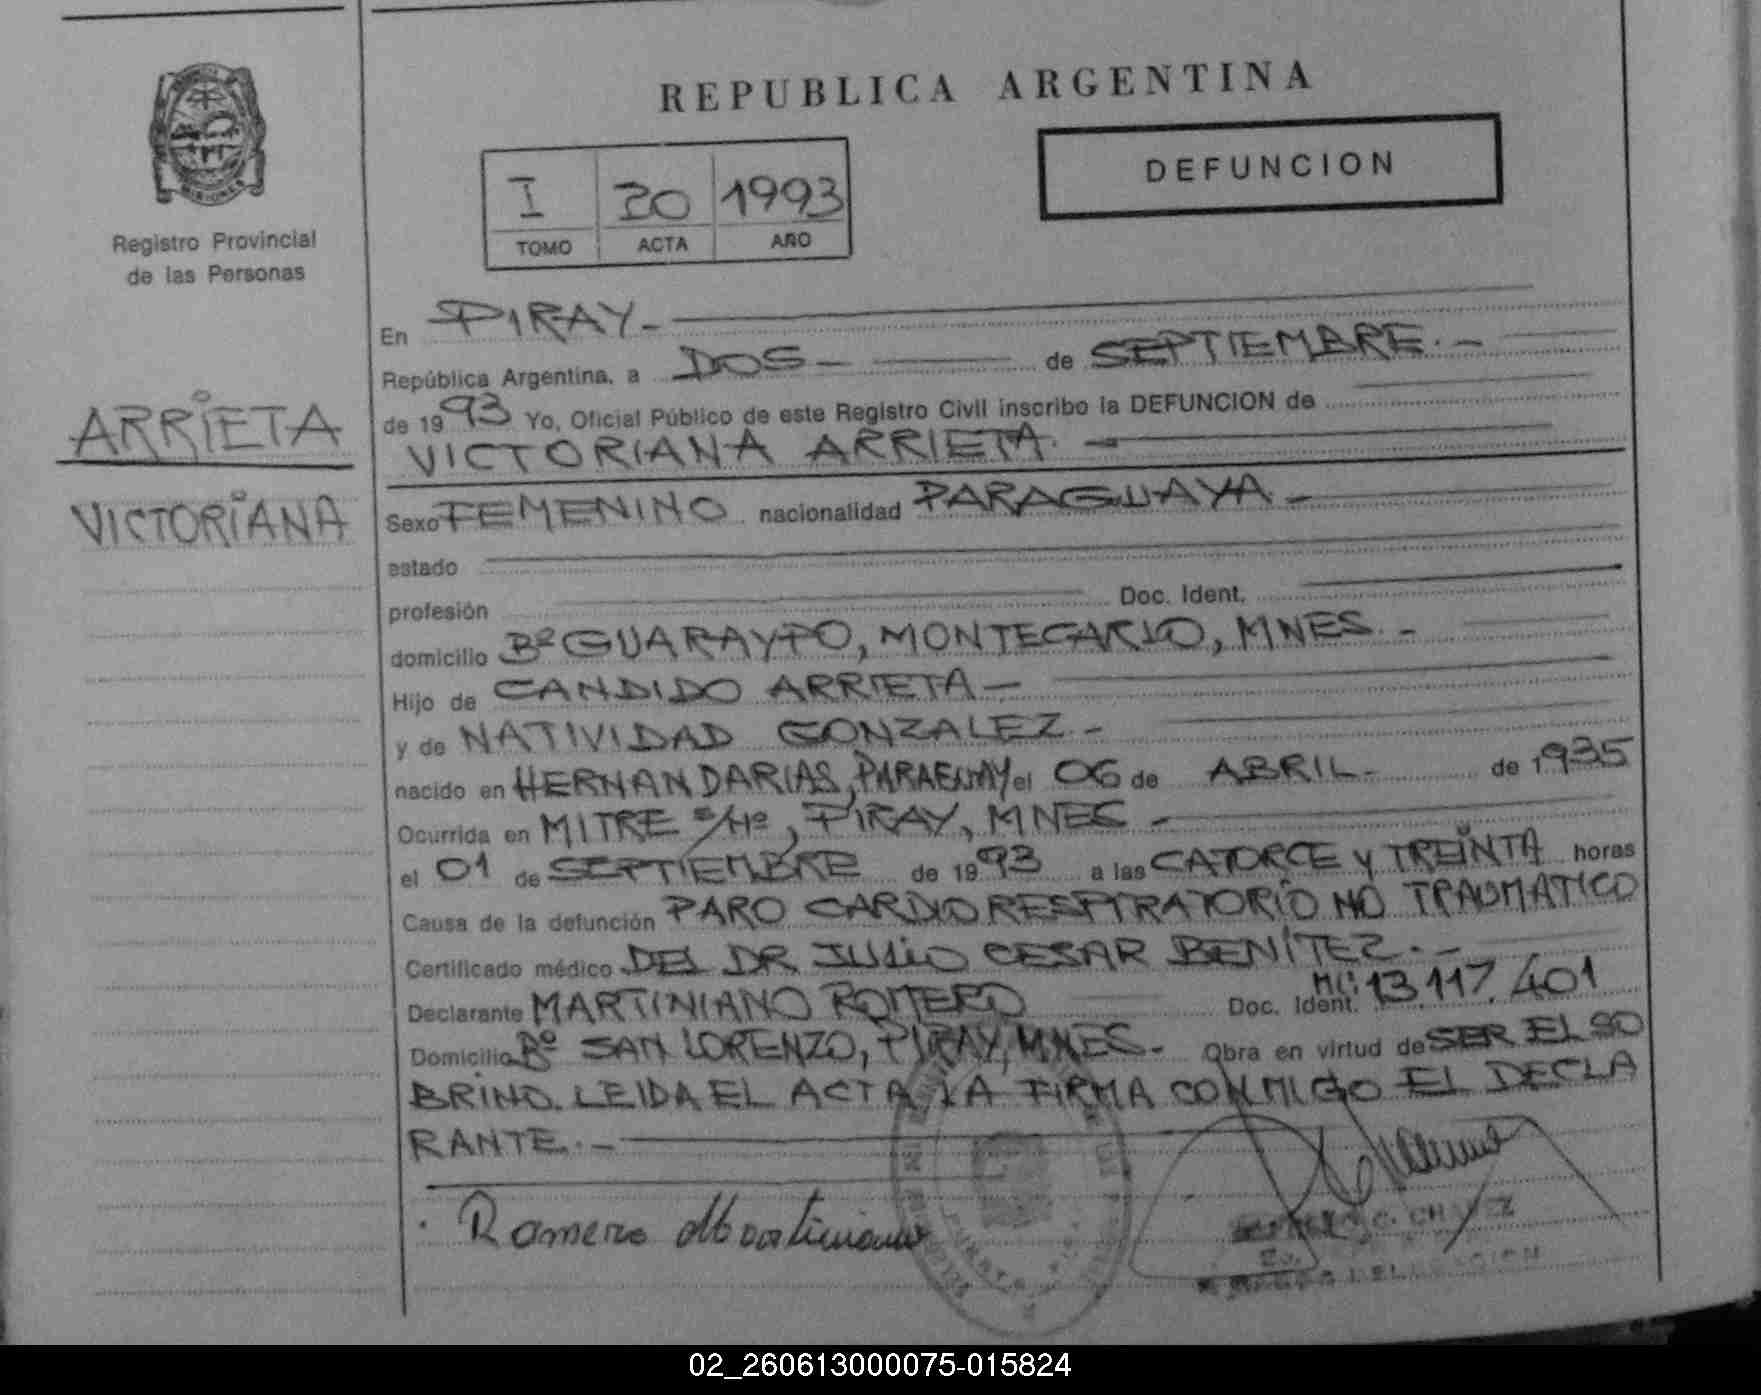 REPUBLICA ARGENTINA
DEFUNCION
I 30 1993
TOMO ACTA AÑO
MISIONES
Registro Provincial
de las Personas
ARRIETA
VICTORIANA
En PIRAY.-
República Argentina, a DOS- de SEPTIEMBRE.-
de 1993 Yo, Oficial Público de este Registro Civil inscribo la DEFUNCION de
VICTORIANA ARRIETA.-
Sexo FEMENINO nacionalidad PARAGUAYA-
estado
profesión Doc. Ident.
domicilio Bº GUARAYPO, MONTECARLO, MNES.-
Hijo de CANDIDO ARRIETA-
y de NATIVIDAD GONZALEZ-
nacido en HERNANDARIAS, PARAGUAY el 06 de ABRIL- de 1935
Ocurrida en MITRE S/Nº, PIRAY, MNES-
el 01 de SEPTIEMBRE de 1993 a las CATORCE y TREINTA horas
Causa de la defunción PARO CARDIORESPIRATORIO NO TRAUMATICO
Certificado médico DEL DR JULIO CESAR BENITEZ.-
Declarante MARTINIANO ROMERO Doc. Ident. MI: 13.117.401
Domicilio Bº SAN LORENZO, PIRAY, MNES- Obra en virtud de SER EL SO
BRINO. LEIDA EL ACTA, LA FIRMA CONMIGO EL DECLA
RANTE.-
Romero Martiniano
C. CHAVEZ
02_260613000075-015824